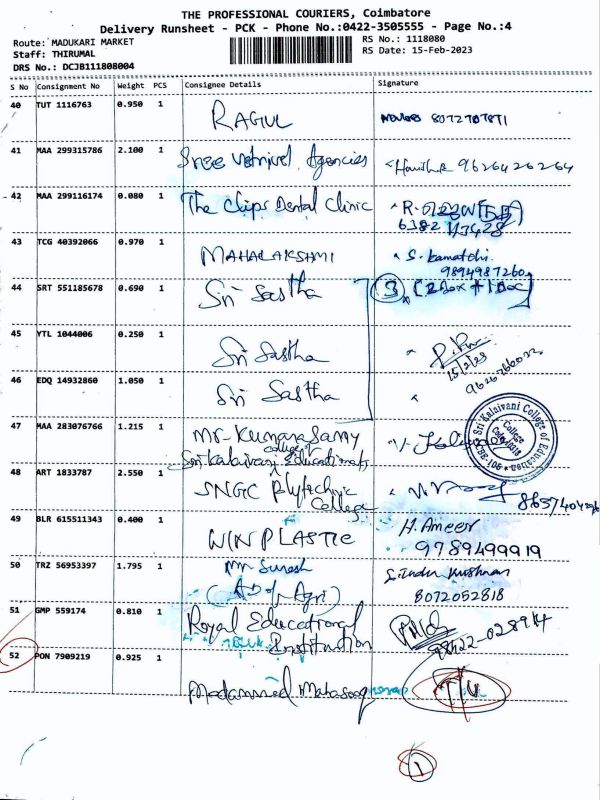 THE PROFESSIONAL COURIERS, Coimbatore
Delivery Runsheet - PCK - Phone No.:0422-3505555 - Page No.:4
Route: MADUKARI MARKET
RS No.: 1118080
Staff: THIRUMAL
RS Date: 15-Feb-2023
DRS No.: DCJB111808004
S No Consignment No Weight PCS Consignee Details Signature
40 TUT 1116763 0.950 1 RAGUL 8072707871
41 MAA 299315786 2.100 1 Sree Vetrivel Agencies 9626426264
42 MAA 299116174 0.080 1 The Clips Dental Clinic
43 TCG 40392066 0.970 1 MAHALAKSHMI S. Kamatchi
9894987260
44 SRT 551185678 0.690 1 Sri Sastha 3 [2 Box + 1 Doc]
45 YTL 1044006 0.250 1 Sri Sastha
15/2/23
46 EDQ 14932860 1.050 1 Sri Sastha
47 MAA 283076766 1.215 1 Mr. Kumarasamy
Sri Kalaivani College of Education
Sri Kalaivani College of Education
48 ART 1833787 2.550 1 SNGC Polytechnic
College
49 BLR 615511343 0.400 1 WIN PLASTIC H. Ameer
9789499919
50 TRZ 56953397 1.795 1 Mr Suresh
(AD of Agri) 8072052818
51 GMP 559174 0.810 1 Royal Educational
Institution
52 PON 7909219 0.925 1
1